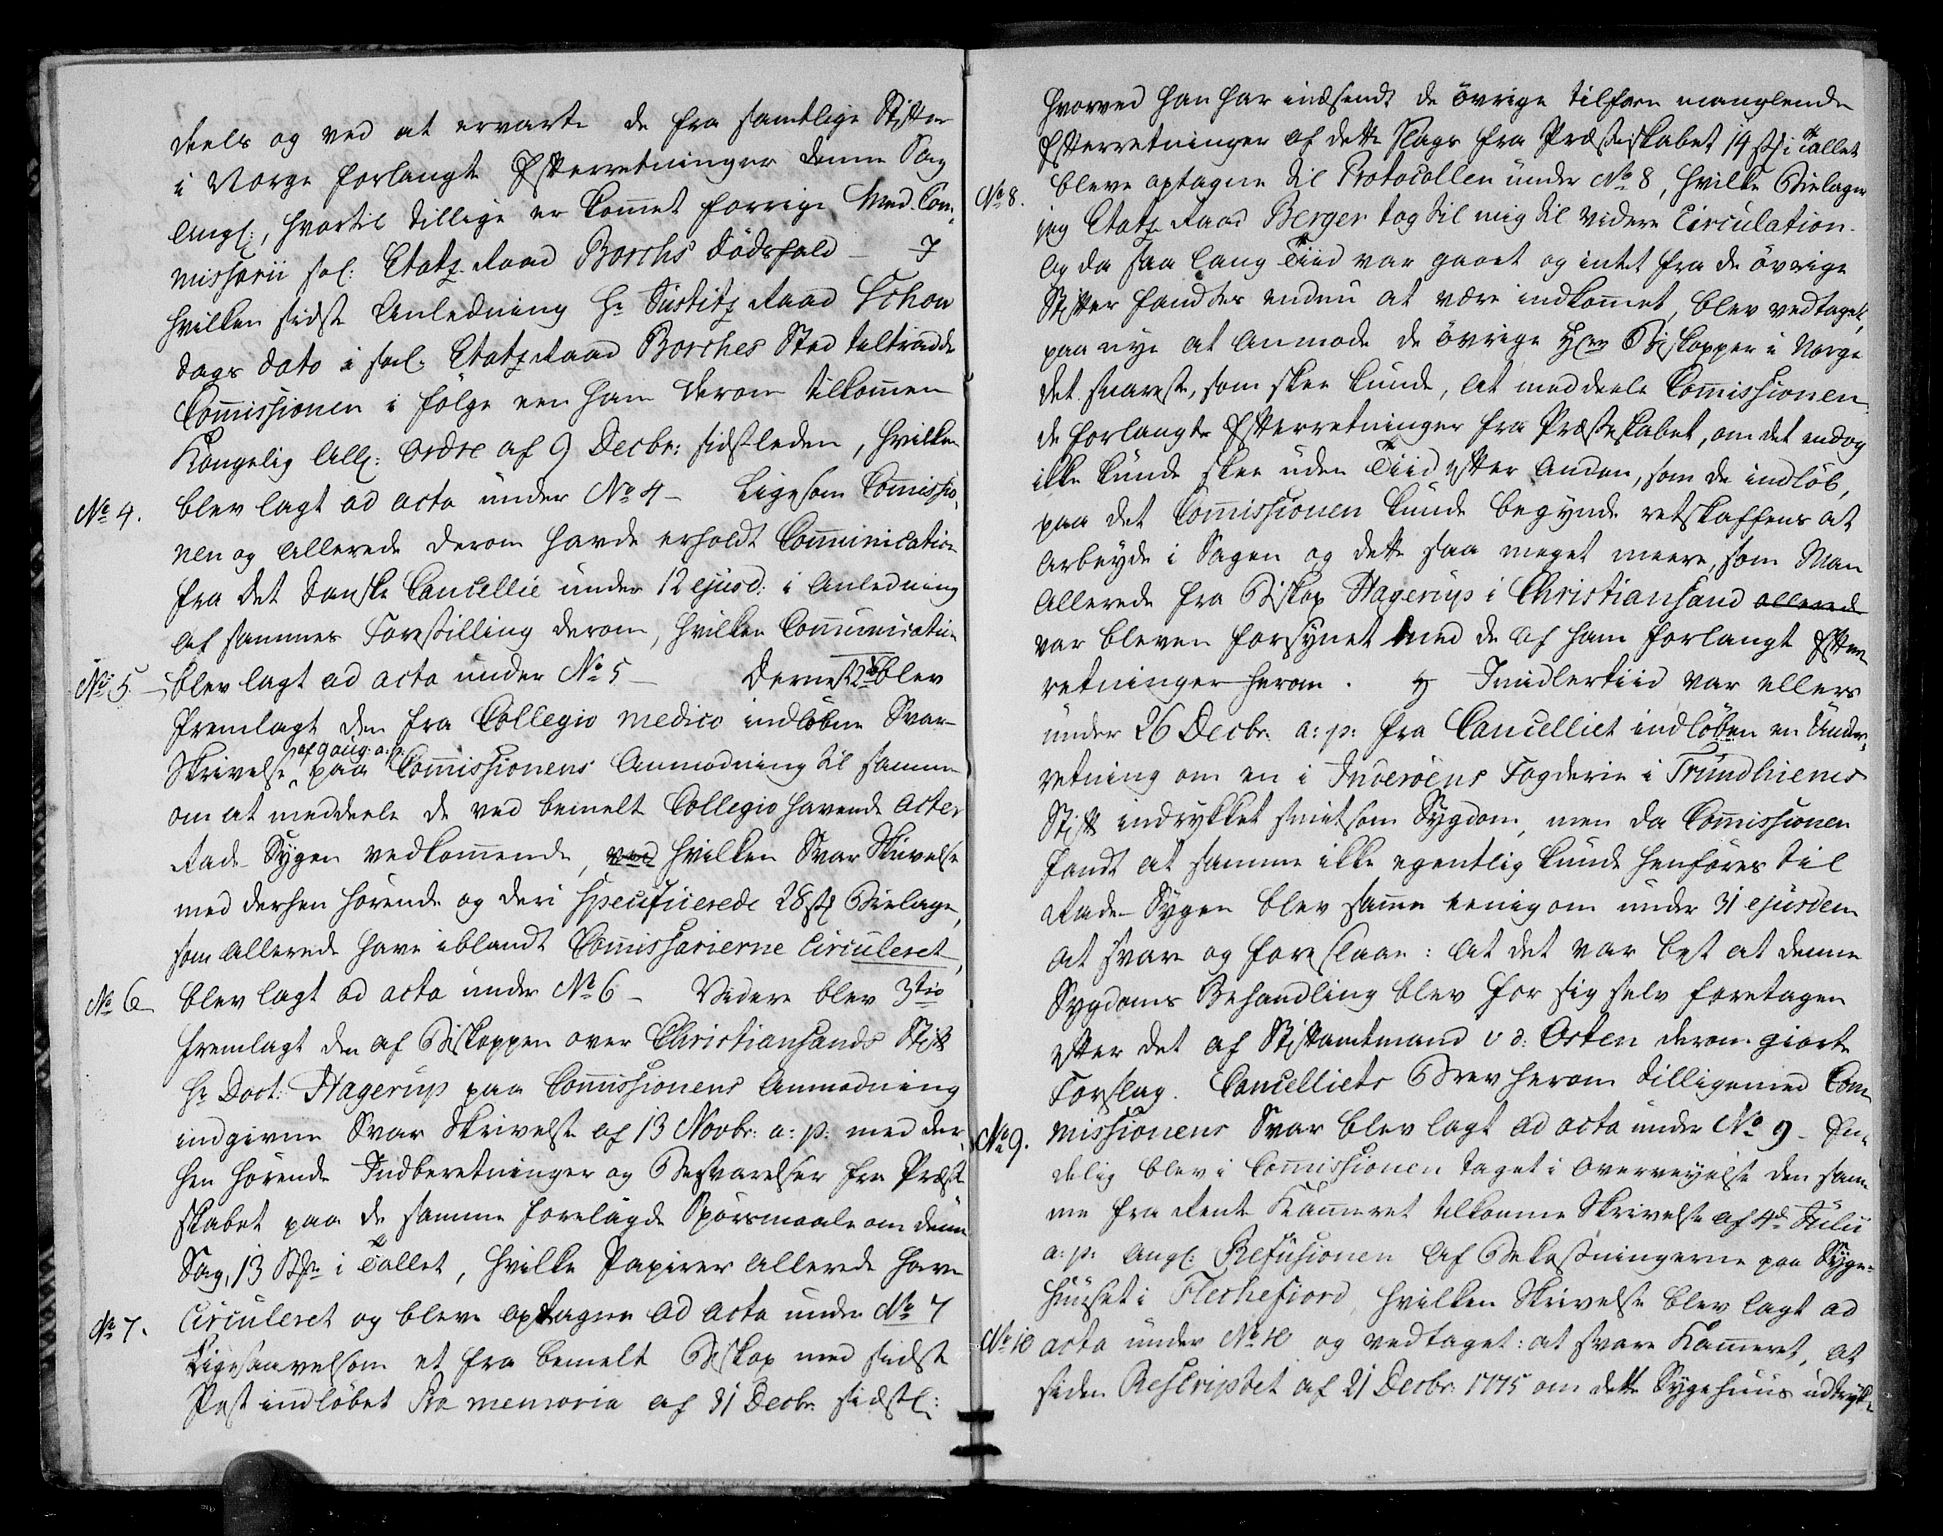 deels og ved at erwarte de fra samtlige Stifter
i Norge forlangte Efterretninger denne Sag
angl:, hvortil tillige er kom̄et forrige Med-Com-
missarii sal: Etatz-Raad Borchs Dödsfald —
hvilken sidste Anledning Hr Justitz Raad Schow
dags dato i sal: Etatz Raad Borches Sted tiltraadde
Com̄issionen i fölge een ham derom tilkom̄en
Kongelig All: ordre af 9 Decbr: sidstleden, hvilken
No 4. blev lagt ad acta under No 4 — Ligesom Com̄issio-
nen og allerede derom havde erholdt Com̄unication
fra det danske Cancellie under 12 ejusd: i Anledning
af sammes Forestilling derom, hvilken Com̄unication
No 5 — blev lagt ad acta under No 5 — Dernest 2do blev
fremlagt den fra Collegio medico indlöbne Svar-
af 9 aug: a: p:
Skrivelse paa Com̄issionens Anmodning til samme
om at meddeele de ved bemelt Collegio havende Acter
Rade-Sygen vedkom̄ende, ved hvilken Svar Skrivelse
med derhen hörende og deri specificerede 28 st: Bielage,
som allerede have iblandt Com̄issarierne Circuleret,
No 6 blev lagt ad acta under No 6 — Videre blev 3tio
fremlagt den af Biskoppen over Christiansands Stift
Hr Doct: Hagerup paa Com̄issionens Anmodning
indgivne Svar Skrivelse af 13 Novbr: a: p: med der-
hen hörende Indberetninger og Besvarelser fra Præste-
skabet paa de samme forelagde Spörsmaale om denne
Sag, 13 i Tallet, hvilke Papirer allerede have
No 7. Circuleret og bleve optagne ad acta under No 7
Ligesaavelsom et fra bemelt Biskop med sidste
Post indlöbet Pro memoria af 31 Decbr. sidstl:
hvorved han har indsendt de övrige tilforn manglende
Efterretninger af dette Slags fra Præsteskabet 14 st: i Tallet
No 8. bleve optagne til Protocollen under No 8, hvilke Bielager
jeg Etatz Raad Berger tog til mig til videre Circulation.
Og da saa lang Tiid var gaaet og intet fra de övrige
Stifter fandtes endnu at være indkom̄et, blev vedtaget,
paa nye at anmode de övrige Hrer Biskopper i Norge
det snareste, som skee kunde, at meddeele Com̄issionen
de forlangte Efterretninger fra Præsteskabet, om det endog
ikke kunde skee uden Tiid efter anden, som de indlöb,
paa det Com̄issionen kunde begynde retskaffens at
arbeyde i Sagen og dette saa meget meere, som Man
allerede fra Biskop Hagerup i Christiansand allerede
var bleven forsynet med de af ham forlangte Efter-
retninger herom. Imidlertiid var ellers
under 26 Decbr. a: p: fra Cancelliet indlöben en Under-
retning om en i Inderöens Fogderie i Trundhiems
Stift indrykket smitsom Sygdom, men da Com̄issionen
fandt at samme ikke egentlig kunde henföres til
Rade-Sygen blev samme eenig om under 31 ejusdem
at svare og foreslaae: at det var best at denne
Sygdoms Behandling blev for sig selv foretagen
efter det af Stiftamtmand v d: Osten derom giorte
Forslag. Cancelliets Brev herom tilligemed Com-
No 9. missionens Svar blev lagt ad acta under No 9 — En-
delig blev i Com̄issionen taget i Overveyelse den sam-
me fra Rente Kam̄eret tilkomne Skrivelse af 4de Julii
a: p: angl: Refusionen af Bekostningerne paa Syge-
huuset i Flechefiord, hvilken Skrivelse blev lagt ad
No 10 acta under No 10 og vedtaget: at svare Kam̄eret, at
siden Rescriptet af 21 Decbr: 1775 om dette Sygehuus udtryk-